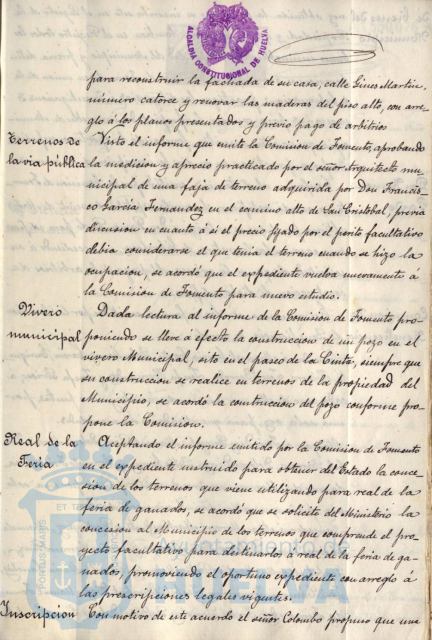 ALCALDIA CONSTITUCIONAL DE HUELVA
para reconstruir la fachada de su casa, calle Gines Martin,
número catorce y renovar las maderas del piso alto, con arre-
glo á los planos presentados y previo pago de arbitrios
Terrenos de Visto el informe que emite la Comision de Fomento, aprobando
la via pública la medicion y aprecio practicado por el señor Arquitecto mu-
nicipal de una faja de terreno adquirida por Don Francis-
co Garcia Fernandez en el camino alto de San Cristobal, previa
discusion en cuanto á si el precio fijado por el perito facultativo
debia considerarse el que tenia el terreno cuando se hizo la
ocupacion, se acordo que el expediente vuelva nuevamente á
la Comision de Fomento para nuevo estudio.
Viveró Dada lectura al informe de la Comision de Fomento pro-
municipal poniendo se lleve á efecto la construccion de un pozo en el
vivero Municipal, sito en el paseo de la Cinta, siempre que
su construccion se realice en terrenos de la propiedad del
Municipio, se acordó la construccion del pozo conforme pro-
pone la Comision.
Real de la Aceptando el informe emitido por la Comision de Fomento
Feria en el expediente instruido para obtener del Estado la conce-
sion de los terrenos que viene utilizando para real de la
feria de ganados, se acordo que se solicite del Ministerio la
concesion al Municipio de los terrenos que comprende el pro-
yecto facultativo para destinarlos á real de la feria de ga-
nados, promoviendo el oportuno expediente con arreglo á
las prescripciones legales vigentes.
Inscripcion Con motivo de este acuerdo el señor Colombo propuso que una
PORTUS MARIS ET TE